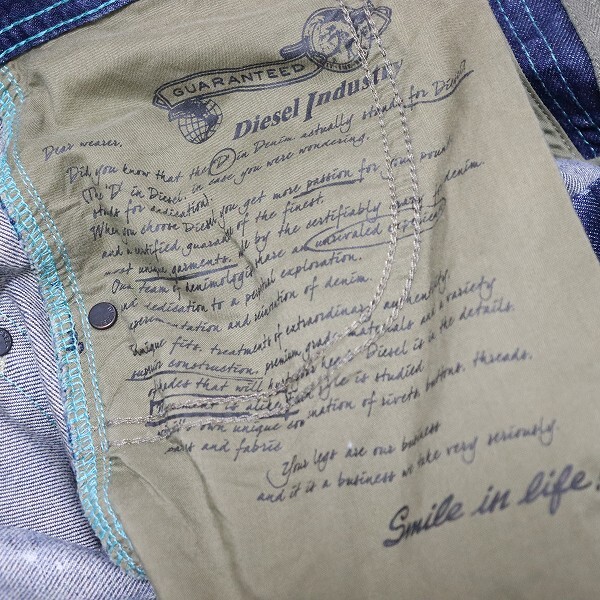 GUARANTEED
Diesel Industry
Dear wearer.
Did you know that the "D" in Denim actually stands for Diesel
(The "D" in Diesel, in case you were wondering,
stands for dedication)
When you choose Diesel, you get more passion for your pound
and a certified guarantee of the finest.
most unique garments. by the certifiably in denim.
Our team of denimologists have an unrivaled expertise
and dedication to a perpetual exploration.
experimentation and reinvention of denim.
Unique fits, treatments of extraordinary authenticity.
superior construction, premium grade materials and a variety
of sides that will Diesel is in the details.
is studied
own unique combination of rivets, buttons, threads.
and fabric
Your legs are our business
and it is a business we take very seriously.
Smile in life!